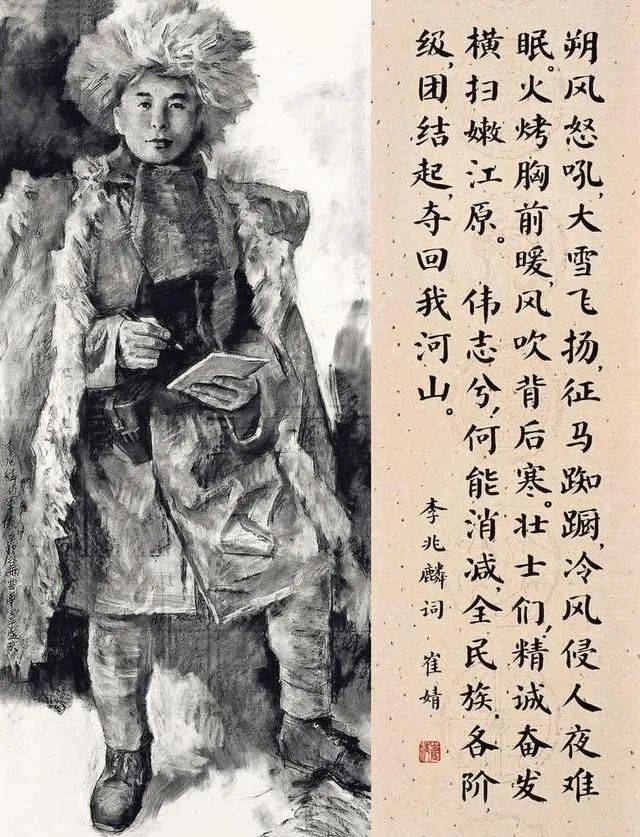 朔风怒吼,大雪飞扬,征马踟蹰,冷风侵人夜难
眠。火烤胸前暖,风吹背后寒。壮士们,精诚奋发
横扫嫩江原。 伟志兮,何能消减,全民族,各阶
级,团结起,夺回我河山。
李兆麟词 崔婧